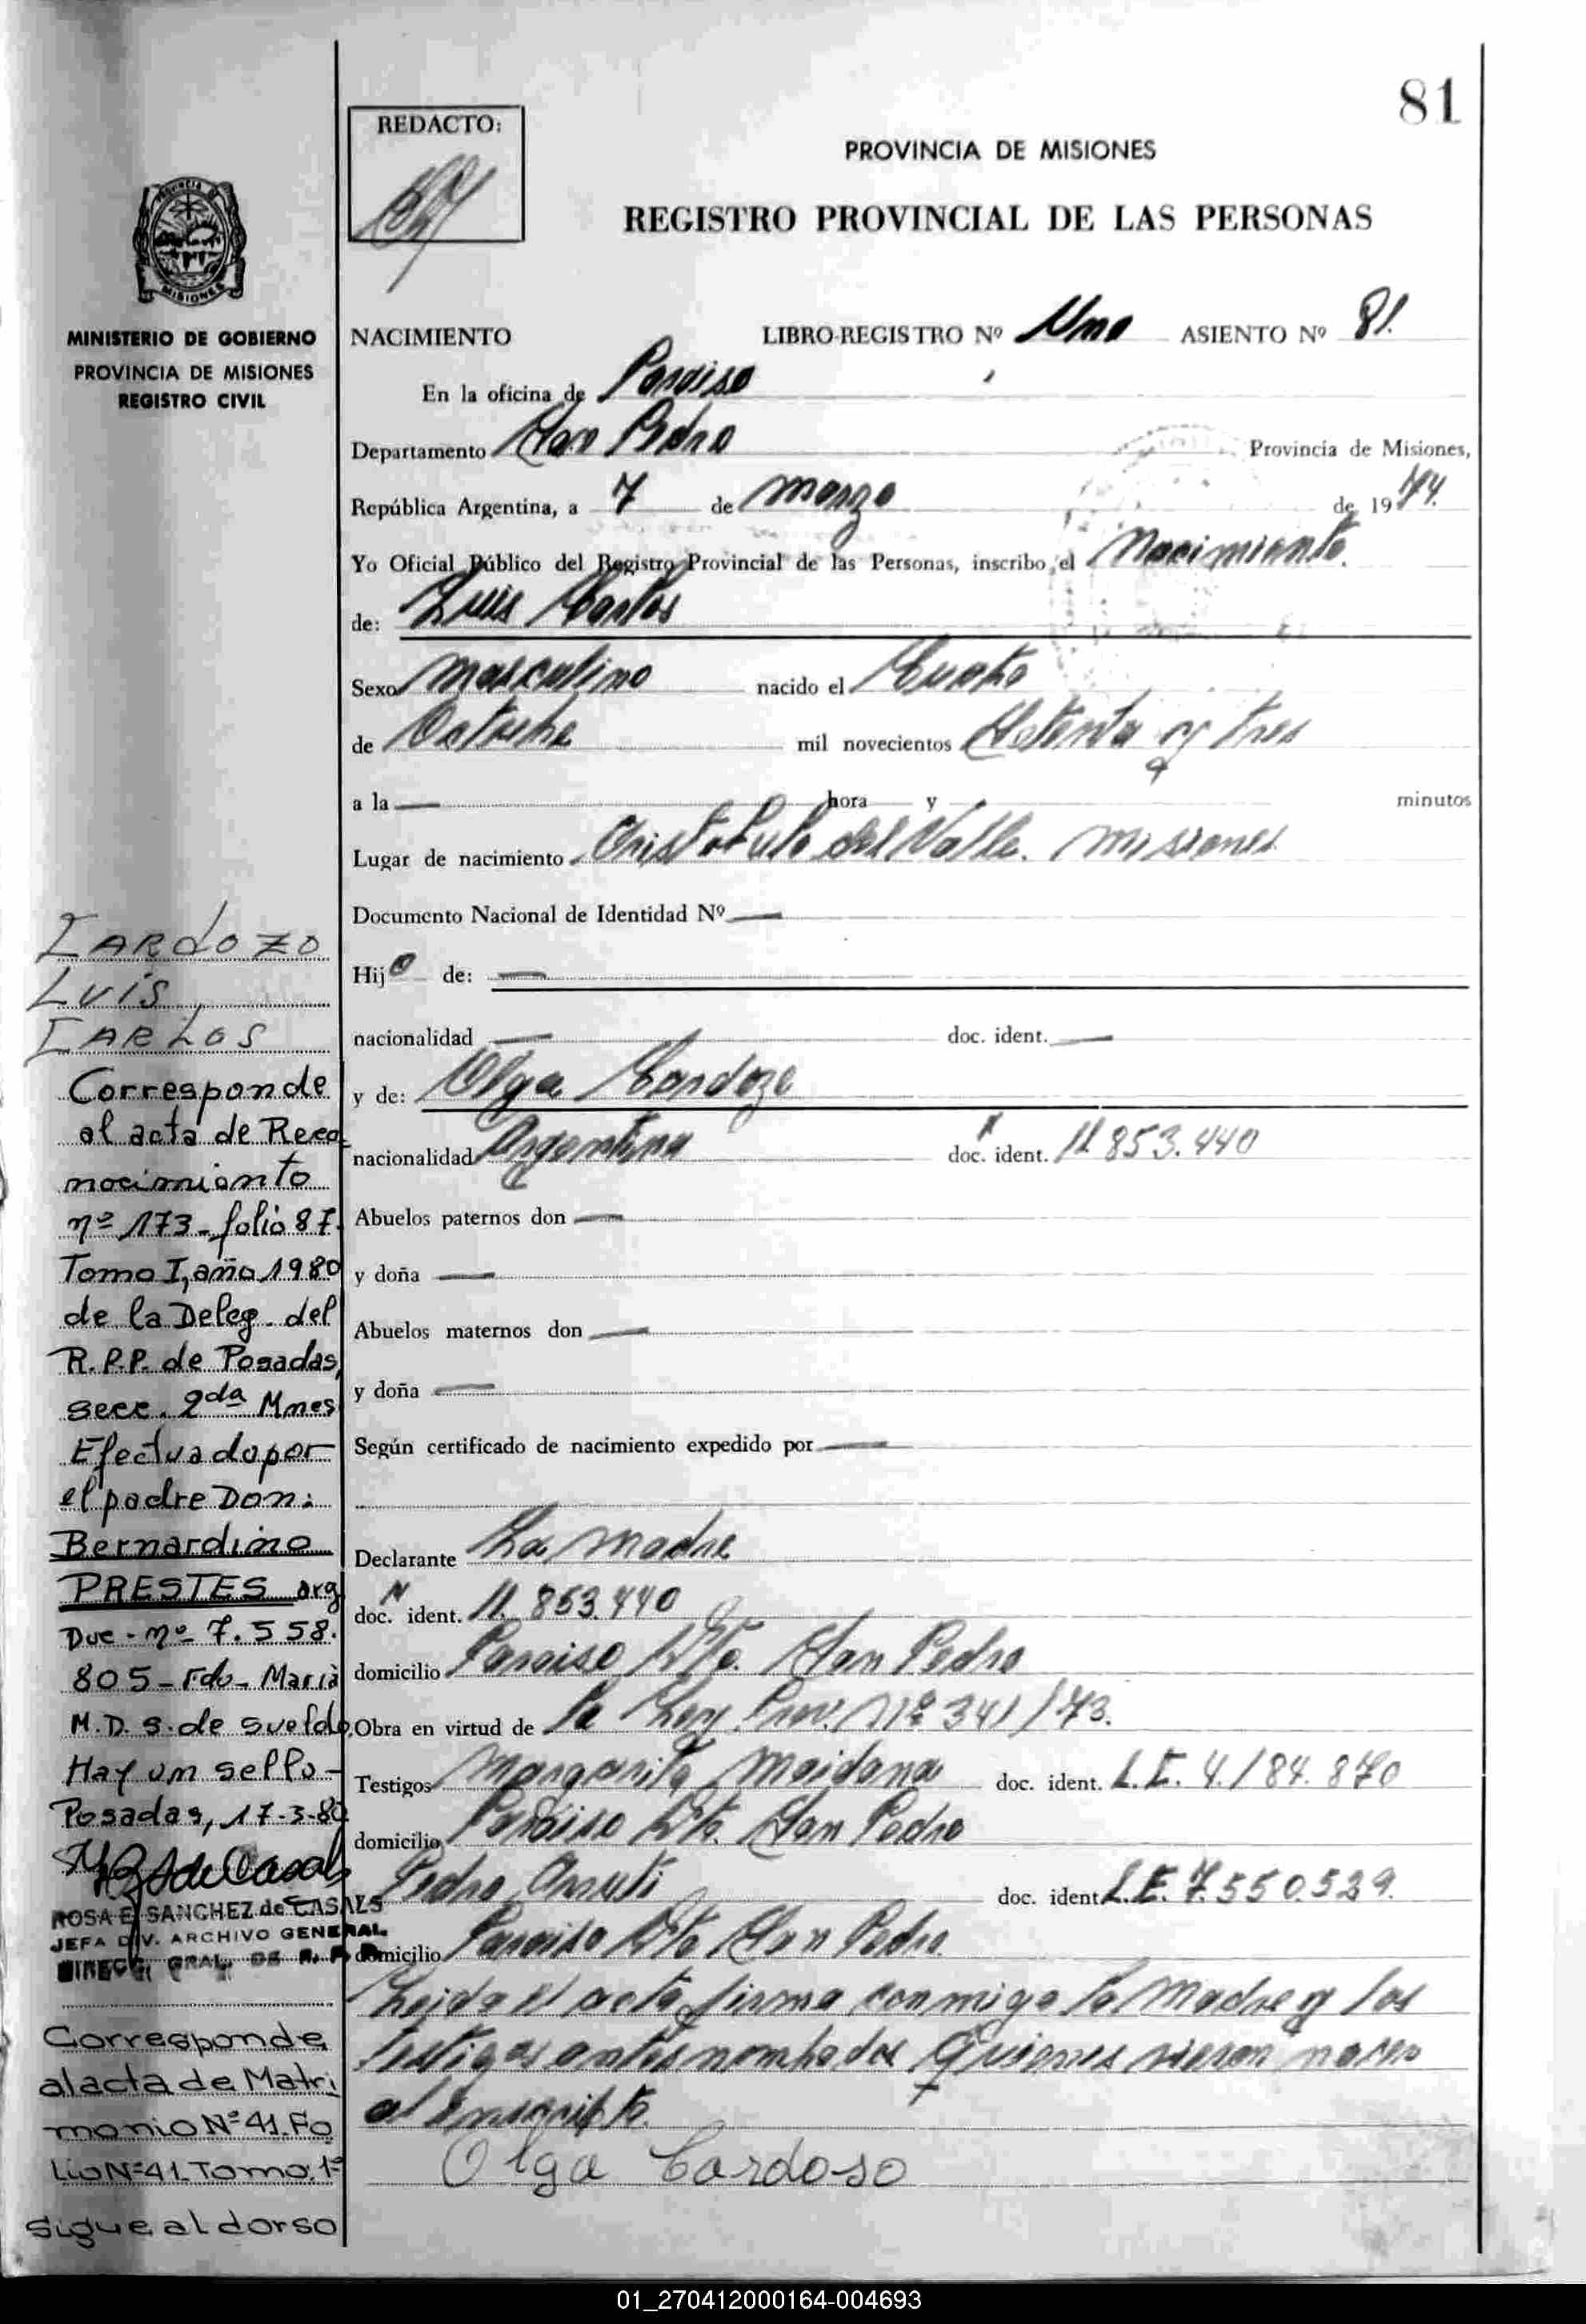 81
REDACTO:
PROVINCIA DE MISIONES
REGISTRO PROVINCIAL DE LAS PERSONAS
MINISTERIO DE GOBIERNO
PROVINCIA DE MISIONES
REGISTRO CIVIL
NACIMIENTO LIBRO-REGISTRO Nº Uno ASIENTO Nº 81.
En la oficina de Paraiso
Departamento San Pedro Provincia de Misiones,
República Argentina, a 7 de marzo de 1974.
Yo Oficial Público del Registro Provincial de las Personas, inscribo el Nacimiento.
de: Luis Carlos
Sexo masculino nacido el Cuatro
de Octubre mil novecientos Setenta y tres
a la hora y minutos
Lugar de nacimiento Aristobulo del Valle. Misiones
Documento Nacional de Identidad Nº
Hijo de:
nacionalidad doc. ident.
y de: Olga Cardozo
nacionalidad Argentina doc. ident. 11.853.440
Abuelos paternos don
y doña
Abuelos maternos don
y doña
Según certificado de nacimiento expedido por
Declarante La madre
doc. ident. 11.853.440
domicilio Paraiso Dto. San Pedro
Obra en virtud de la Ley Prov. Nº 341/73.
Testigos Margarita Maidana doc. ident. L.E. 4.184.870
domicilio Paraiso Dto. San Pedro
Pedro doc. ident. L.E. 7.550.529.
domicilio Paraiso Dto San Pedro
Leida el acta, firma conmigo la Madre y los
testigos antes nombrados Quienes vieron nacer
al Inscripto.
Olga Cardoso
CARDOZO
LUIS
CARLOS
Corresponde
al acta de Reco
nocimiento
nº 173-folio 87.
Tomo I, año 1980
de la Deleg. del
R.P.P. de Posadas,
secc. 2da Mnes
Efectuado por
el padre Don:
Bernardino
PRESTES arg
Doc-nº 7.558.
805-Fdo-Maria
M.D. S. de Sueldo,
Hay un sello-
Posadas, 17-3-80
ROSA E. SANCHEZ de CASALS
JEFA DIV. ARCHIVO GENERAL
DIRECC. GRAL. DE R. P. P.
Corresponde
al acta de Matri
monio Nº 41. Fo
lio Nº 41. Tomo. 1º
sigue al dorso
01_270412000164-004693